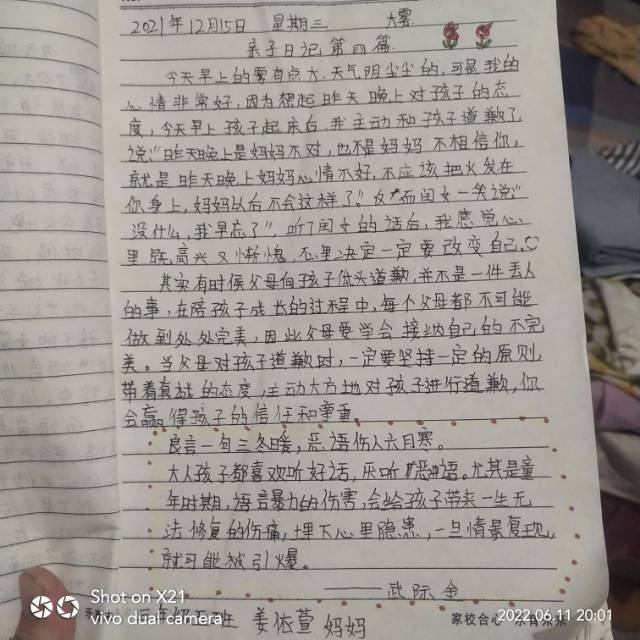 2021年12月15日 星期三 大雾
亲子日记第四篇
今天早上的雾有点大,天气阴尘尘的,可是我的
心情非常好,因为想起昨天晚上对孩子的态
度,今天早上孩子起床后,我主动和孩子道歉了
说:"昨天晚上是妈妈不对,也不是妈妈不相信你,
就是昨天晚上妈妈心情不好,不应该把火发在
你身上,妈妈以后不会这样了!"反而闺女一笑说:"
没什么,我早忘了"。听了闺女的话后,我感觉心
里既高兴又惭愧,心里决定一定要改变自己。
其实有时候父母向孩子低头道歉,并不是一件丢人
的事,在陪孩子成长的过程中,每个父母都不可能
做到处处完美,因此父母要学会接纳自己的不完
美。当父母对孩子道歉时,一定要坚持一定的原则,
带着真诚的态度,主动大方地对孩子进行道歉,你
会赢得孩子的信任和尊重。
良言一句三冬暖,恶语伤人六月寒。
大人孩子都喜欢听好话,厌听恶语。尤其是童
年时期,语言暴力的伤害,会给孩子带来一生无
法修复的伤痛,埋下心里隐患,一旦情景复现,
就可能被引爆。
——武际金
姜依萱妈妈
家校合心
Shot on X21
vivo dual camera
2022.06.11 20:01